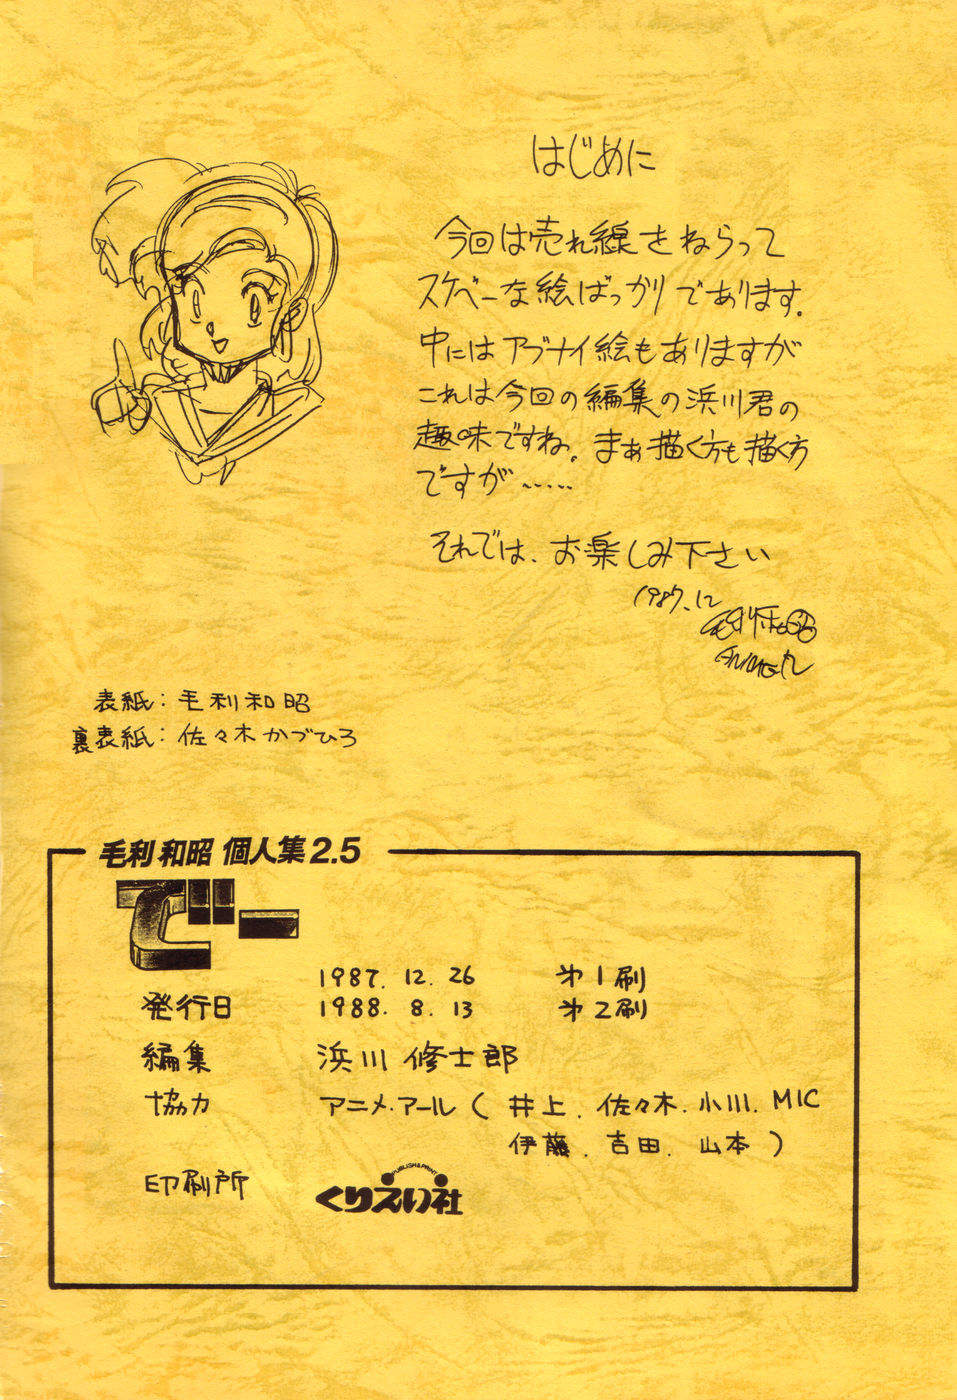 はじめに
今回は売れ線をねらって
スケベーな絵ばっかりであります。
中にはアブナイ絵もありますが
これは今回の編集の浜川君の
趣味ですね。まぁ描く方も描く方
ですが……
それでは、お楽しみ下さい
1987.12
毛利和昭
表紙：毛利和昭
裏表紙：佐々木かづひろ
毛利和昭 個人集2.5
でー
1987.12.26 第1刷
発行日 1988.8.13 第2刷
編集 浜川修士郎
協力 アニメ・アール（井上．佐々木．小川．MIC
伊藤．吉田．山本）
PUBLISH & PRINT
印刷所 くりえい社